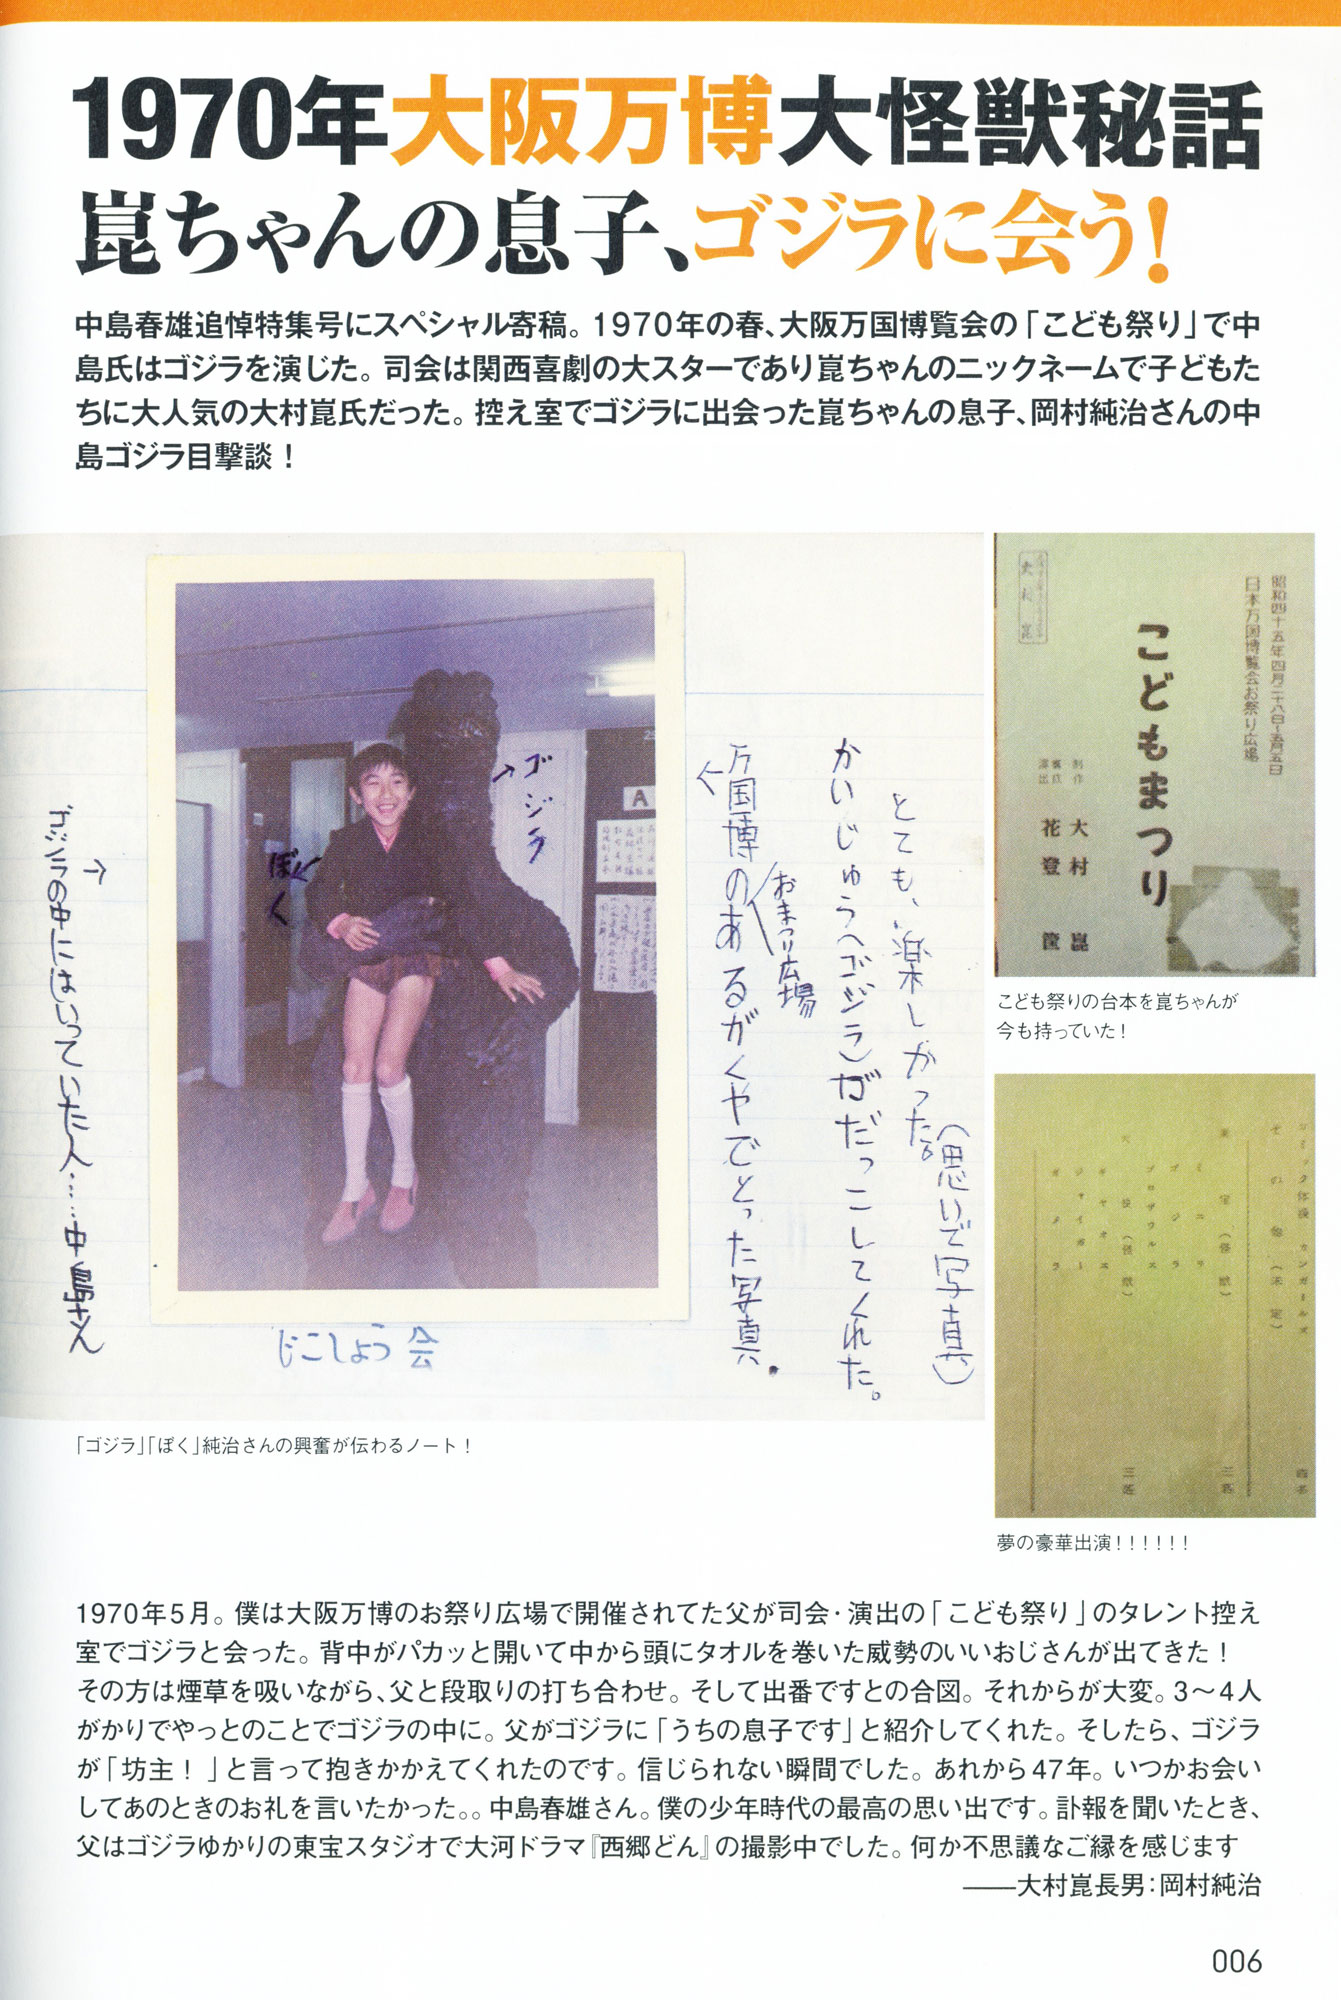 1970年大阪万博大怪獣秘話
崑ちゃんの息子、ゴジラに会う！
中島春雄追悼特集号にスペシャル寄稿。1970年の春、大阪万国博覧会の「こども祭り」で中
島氏はゴジラを演じた。司会は関西喜劇の大スターであり崑ちゃんのニックネームで子どもた
ちに大人気の大村崑氏だった。控え室でゴジラに出会った崑ちゃんの息子、岡村純治さんの中
島ゴジラ目撃談！
とても、楽しかった。(思いで写真)
かいじゅう(ゴジラ)がだっこしてくれた。
おまつり広場
万国博のあるがくやでとった写真.
ゴジラ
ぼく
A
ゴジラの中にはいっていた人….中島さん
じこしょう会
「ゴジラ」「ぼく」純治さんの興奮が伝わるノート！
昭和四十五年四月二十八日~五月五日
日本万国博覧会お祭り広場
こどもまつり
制作 大村崑
演出 花登筐
大村崑
こども祭りの台本を崑ちゃんが
今も持っていた！
コミック体操 カンガールズ
その他(未定)
東宝(怪獣) 三匹
ミニラ
ゴジラ
大映(怪獣) 三匹
ギャオス
ジャイガー
ガメラ
夢の豪華出演！！！！！！
1970年5月。僕は大阪万博のお祭り広場で開催されてた父が司会・演出の「こども祭り」のタレント控え
室でゴジラと会った。背中がパカッと開いて中から頭にタオルを巻いた威勢のいいおじさんが出てきた！
その方は煙草を吸いながら、父と段取りの打ち合わせ。そして出番ですとの合図。それからが大変。3～4人
がかりでやっとのことでゴジラの中に。父がゴジラに「うちの息子です」と紹介してくれた。そしたら、ゴジラ
が「坊主！」と言って抱きかかえてくれたのです。信じられない瞬間でした。あれから47年。いつかお会い
してあのときのお礼を言いたかった。。中島春雄さん。僕の少年時代の最高の思い出です。訃報を聞いたとき、
父はゴジラゆかりの東宝スタジオで大河ドラマ『西郷どん』の撮影中でした。何か不思議なご縁を感じます
——大村崑長男：岡村純治
006